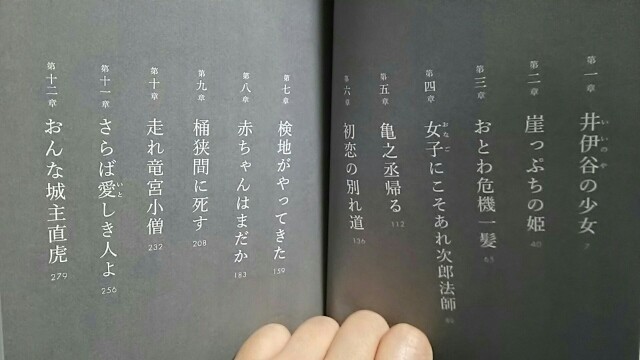 第一章 井伊谷の少女 7
いいのや
第二章 崖っぷちの姫 40
第三章 おとわ危機一髪 65
第四章 女子にこそあれ次郎法師
おなご
第五章 亀之丞帰る 112
第六章 初恋の別れ道 136
第七章 検地がやってきた 159
第八章 赤ちゃんはまだか 183
第九章 桶狭間に死す 208
第十章 走れ竜宮小僧 232
第十一章 さらば愛しき人よ 256
いと
第十二章 おんな城主直虎 279